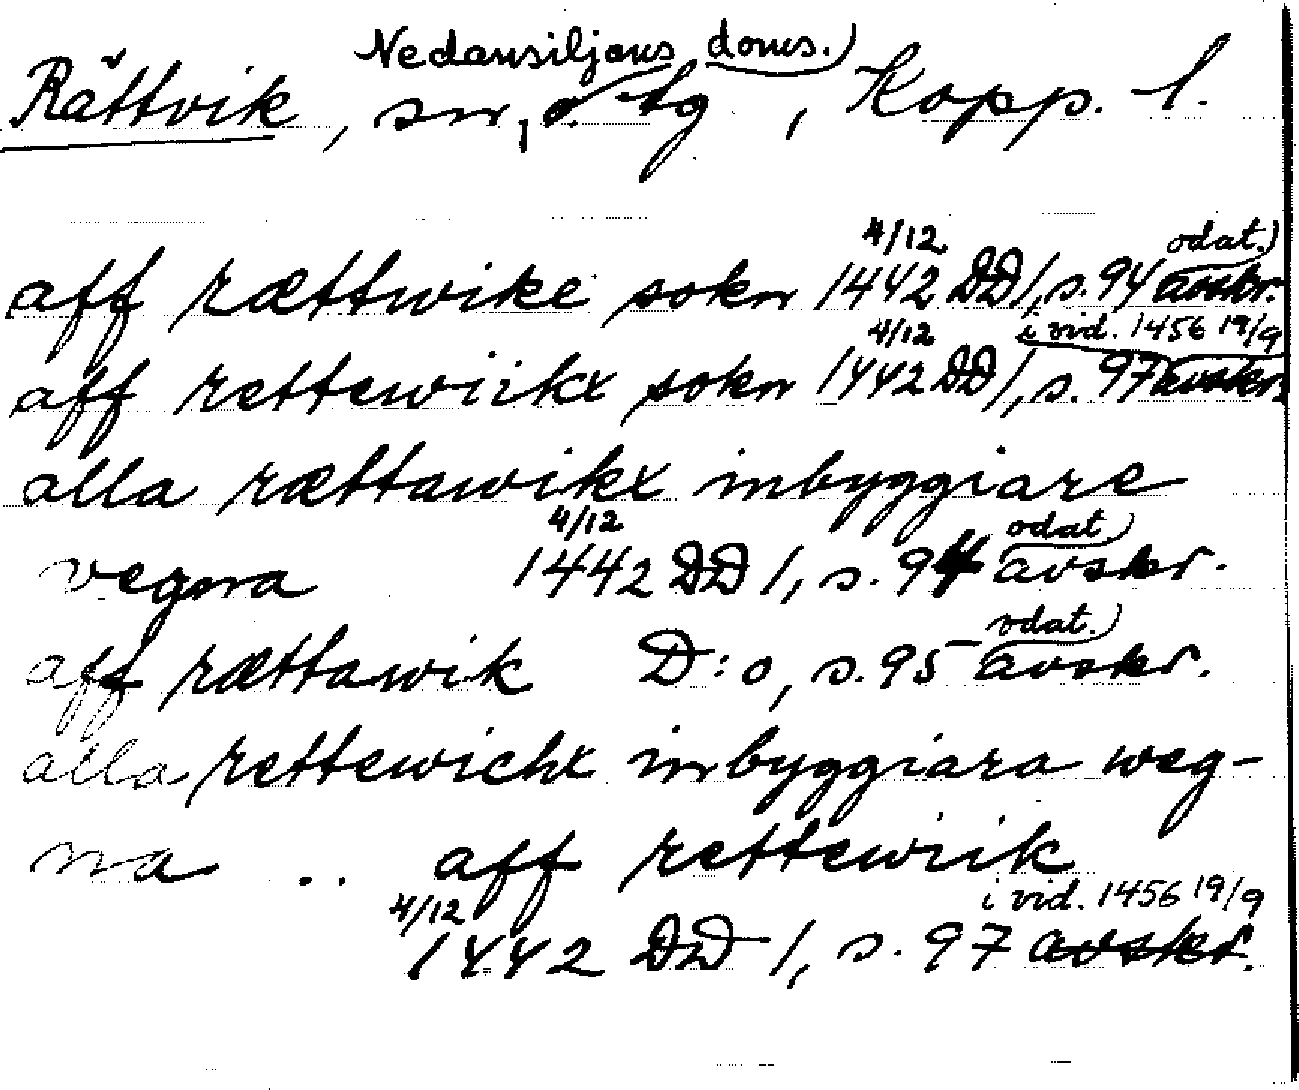 Nedansiljans doms.)
Rättvik, sn, o. tg, Kopp. l.
4/12 odat.)
aff rættwike sokn 1442 DD 1, s. 94 avskr.
4/12 i vid. 1456 19/9
aff rettewiikx sokn 1442 DD 1, s. 97 avskr.
alla rættawikx inbyggiare
4/12 odat)
vegna 1442 DD 1, s. 94 avskr.
odat.)
aff rættawik D:o, s. 95 avskr.
alla rettewichx inbyggiara weg-
na .. aff rettewiik
4/12 i vid. 1456 19/9
1442 DD 1, s. 97 avskr.